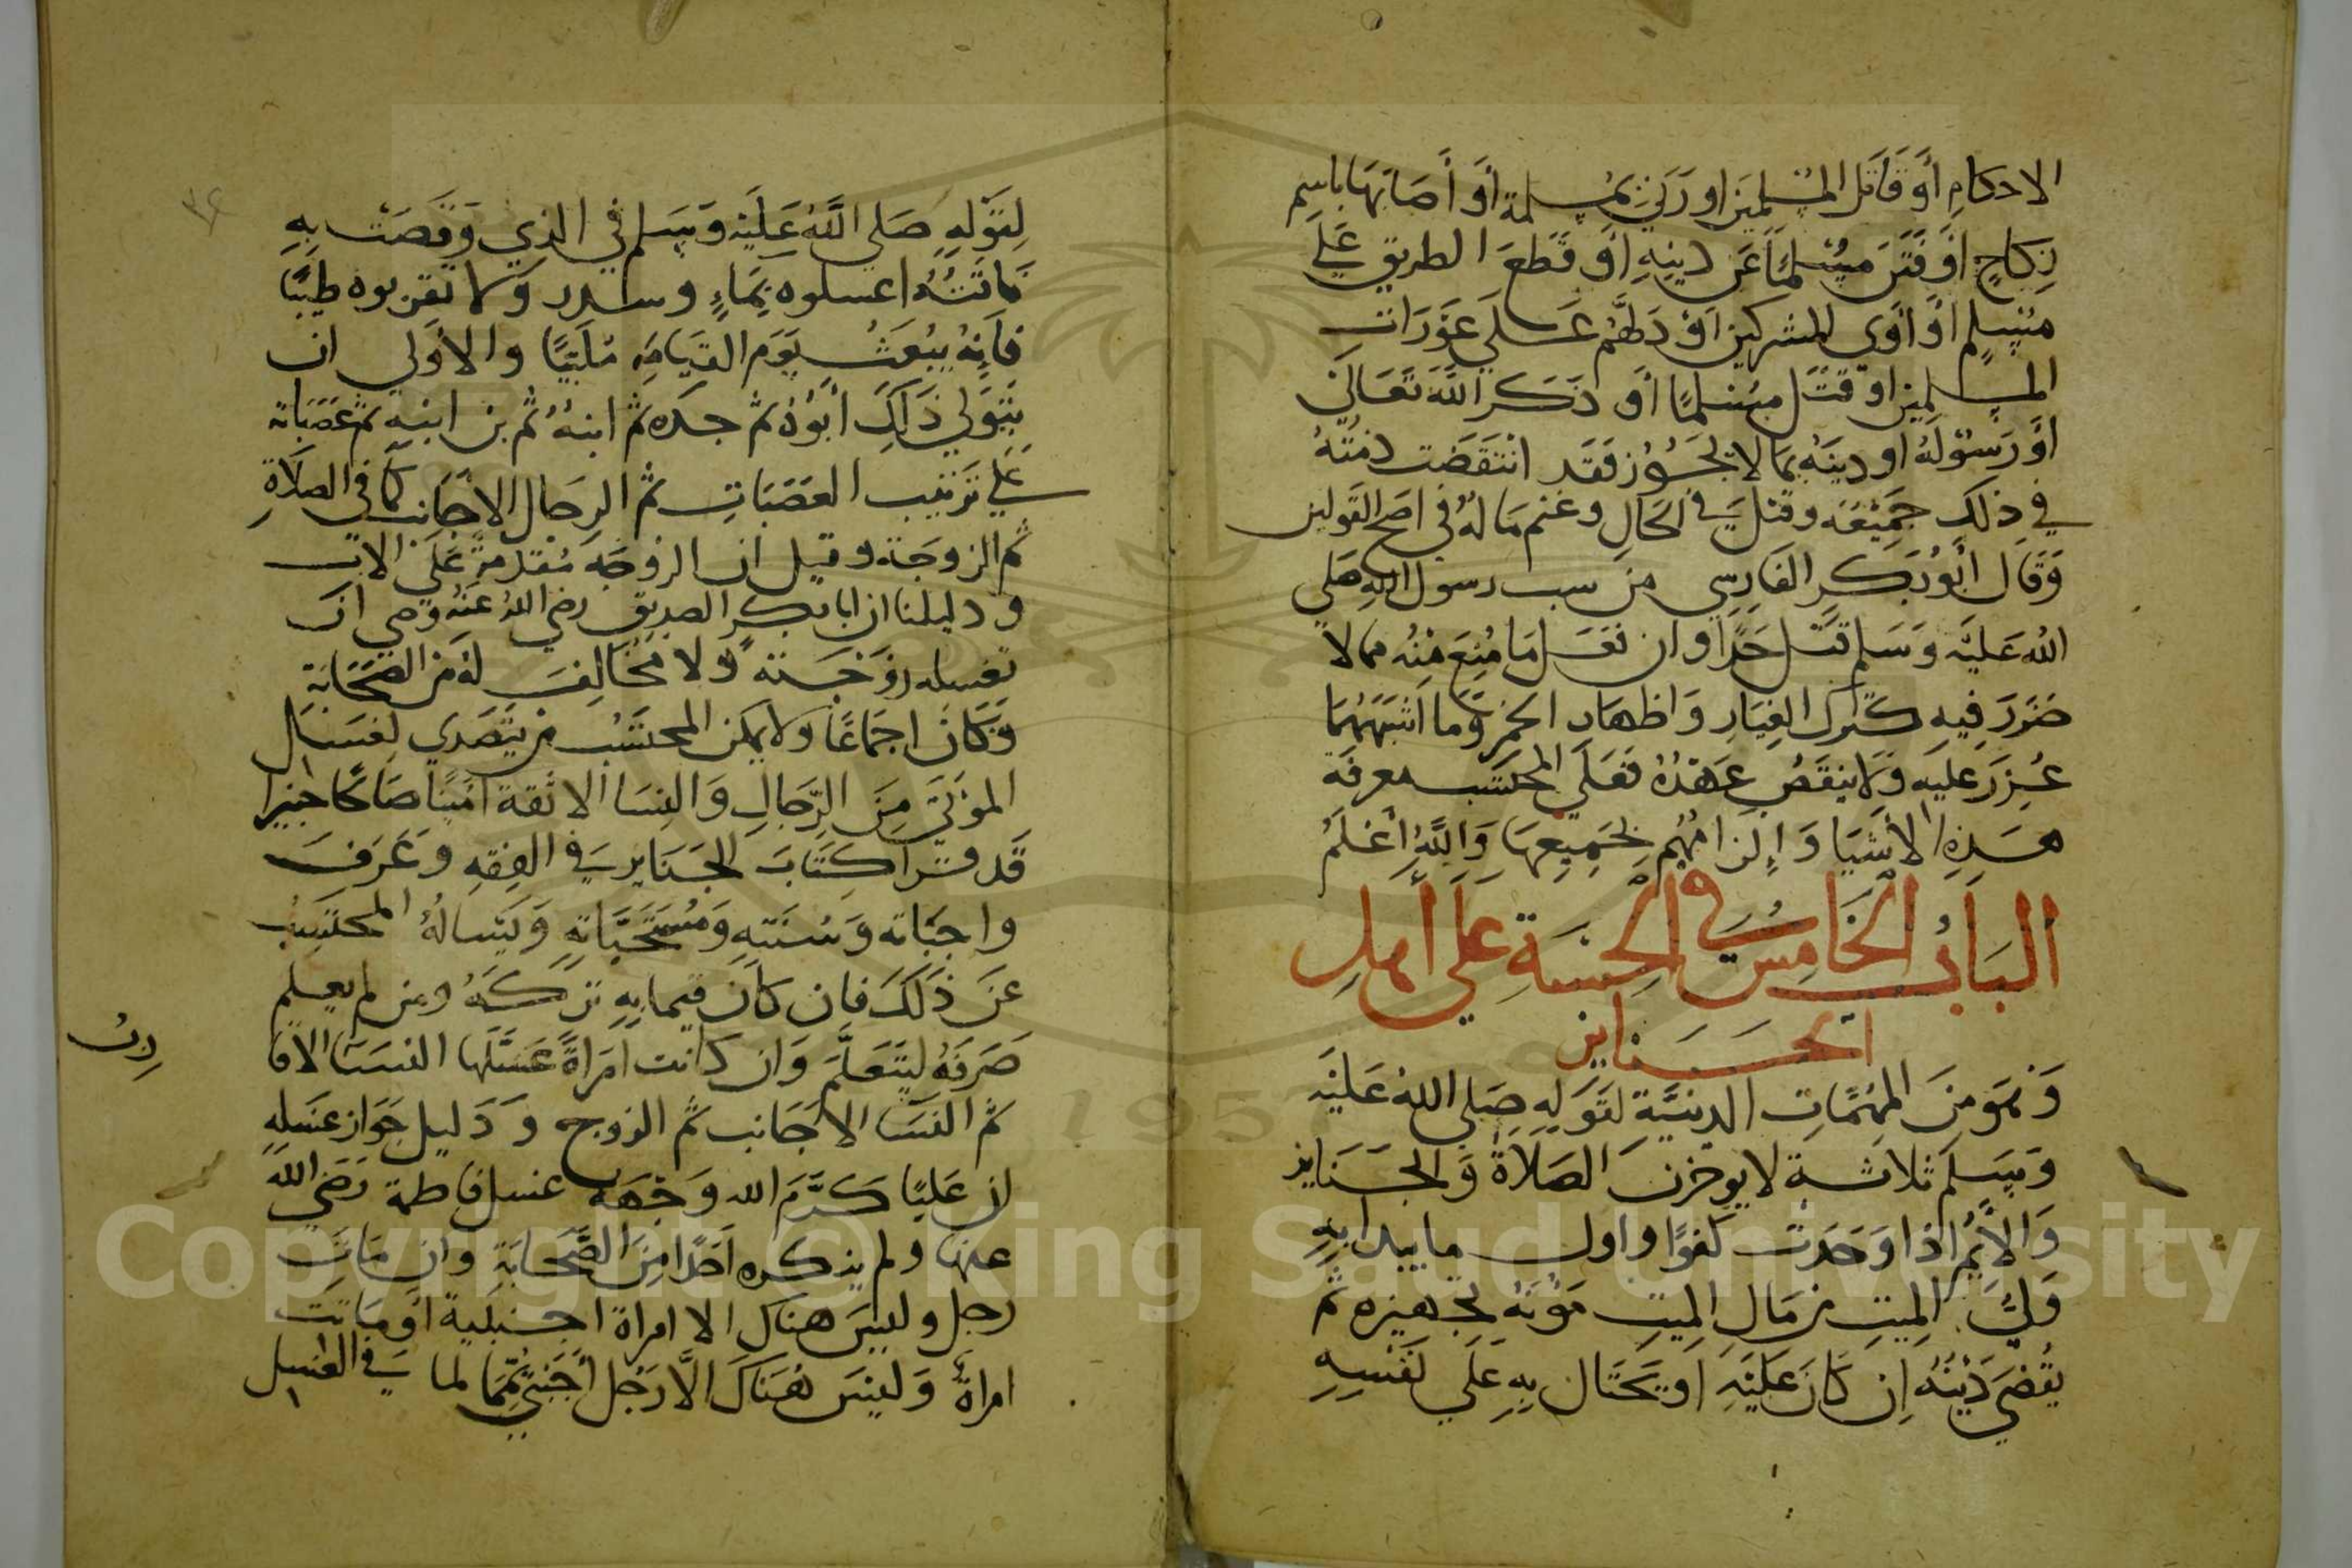 الاحكام أو قاتل المسلمين او زني بمسلمة أو أصابها باسم
نكاح او فتن مسلما عن دينه او قطع الطريق علي
مسلم او أوي المشركين او دلهم علي عورات
المسلمين او قتل مسلما أو ذكر الله تعالي
او رسوله او دينه بما لا يجوز فقد انتقضت ذمته
في ذلك جميعه وقتل في الحال وغنم ماله في اصح القولين
وقال أبو بكر الفارسي من سب رسول الله صلي
الله عليه وسلم قتل حدا وان فعل ما منع منه مما لا
ضرر فيه كترك الغيار واظهار الخمر وما اشبههما
عزر عليه ولا ينقض عهده فعلي المحتسب معرفة
هذه الأشيا وإلزامهم بجميعها والله أعلم
الباب الخامس في الحسبة علي أهل
الجنايز
وهو من المهمات الدينية لقوله صلي الله عليه
وسلم ثلاثة لا يوخرن الصلاة والجنايز
والأيم اذا وجدت كفوا واول ما يبدا به
ولي الميت من مال الميت مؤنة تجهيزه ثم
يقضي دينه إن كان عليه او يحتال به علي نفسه
لقوله صلي الله عليه وسلم في الذي وقصت به
ناقته اغسلوه بماء وسدر ولا تقربوه طيبا
فانه يبعث يوم القيامه ملبيا والأولي ان
يتولي ذلك أبوه ثم جده ثم ابنه ثم بن ابنه ثم عصباته
علي ترتيب العصبات ثم الرجال الاجانب كما في الصلاة
ثم الزوجة وقيل ان الزوجه مقدمة علي الاب
ودليلنا ان ابا بكر الصديق رضي الله عنه وصي ان
تغسله زوجته ولا مخالف له من الصحابة
وكان اجماعا ولا يمكن المحتسب من يتصدي لغسل
الموتي من الرجال والنسا الا ثقة امينا صالحا خبيرا
قد قرا كتاب الجنايز في الفقه وعرف
واجباته وسنته ومستحباته ويساله المحتسب
عن ذلك فان كان قيما به تركه ومن لم يعلم
صرفه ليتعلم وان كانت امراة غسلها النسا الاقا
رب
ثم النسا الاجانب ثم الزوج ودليل جواز غسله
ان عليا كرم الله وجهه غسل فاطمة رضي الله
عنها ولم ينكره احدا من الصحابة وان مات
رجل وليس هناك الا امراة اجنبية او ماتت
امراة وليس هناك الا رجل أجنبي يمما لما في الغسل